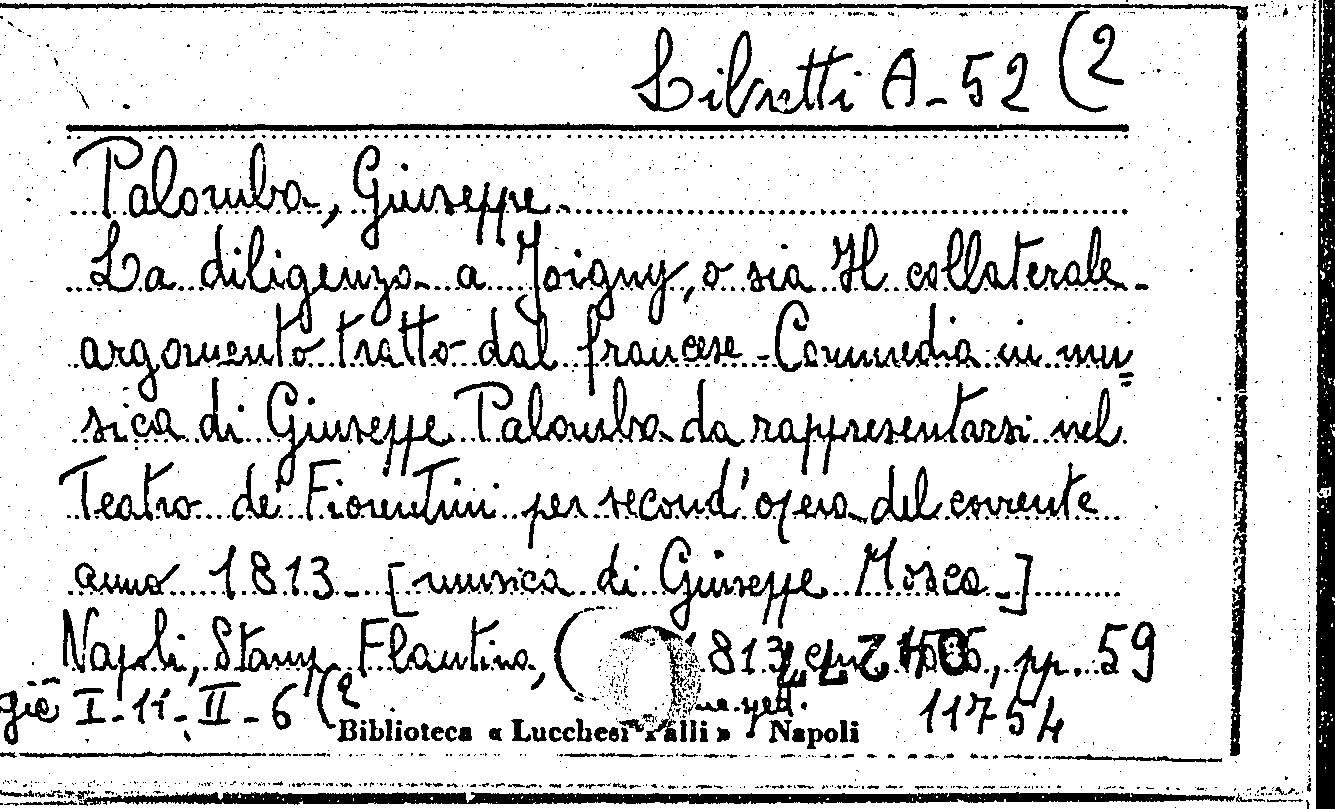 Libretti A-52 (2
Palomba, Giuseppe.
La diligenza a Joigny, o sia Il collaterale.
argomento tratto dal francese. Commedia in mu=
sica di Giuseppe Palomba da rappresentarsi nel
Teatro de' Fiorentini per second'opera del corrente
anno 1813. [musica di Giuseppe Mosca.]
Napoli, Stamp. Flautina, ( 1813, pp. 59
già I-11-II-6 (2 11754
Biblioteca « Lucchesi Palli » Napoli